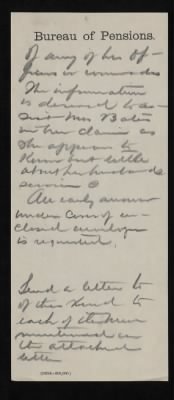 Bureau of Pensions.
of any of his of-
ficers or comrades
The information
is desired to as-
sist Mrs Bates
in her claim as
she appears to
know but little
about her husbands
service
An early answer
under cover of en-
closed envelope
is requested.
Send a letter to
of this kind to
each of the men
mentioned in
the attached
letter